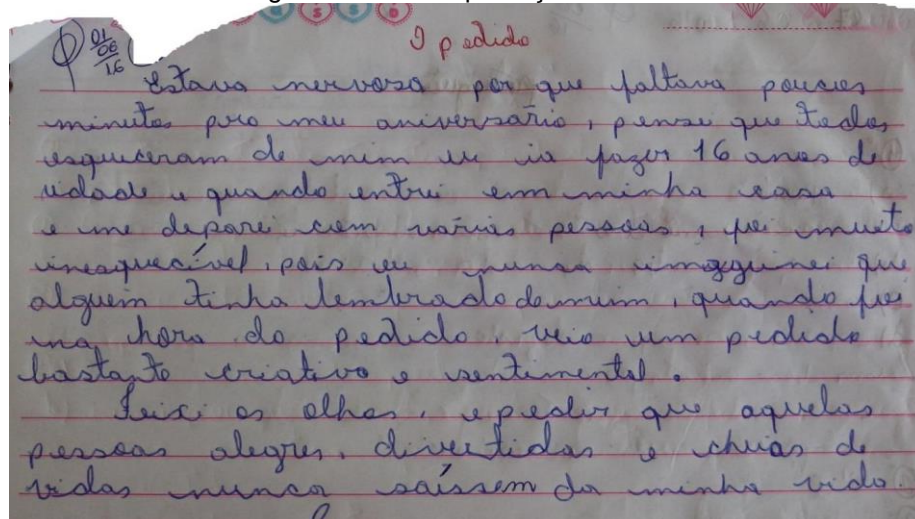 01
06
16
O pedido
Estava nervosa por que faltava poucos
minutos pro meu aniversário, pensei que todos
esqueceram de mim eu ia fazer 16 anos de
idade e quando entrei em minha casa
e me deparei com várias pessoas, foi muito
inesquecível, pois eu nunca imagginei que
alguém tinha lembrado de mim, quando foi
na hora do pedido, veio um pedido
bastante criativo e sentimental.
Feixei os olhos, e pedir que aquelas
pessoas alegres, divertidas e cheias de
vidas nunca saíssem da minha vida.